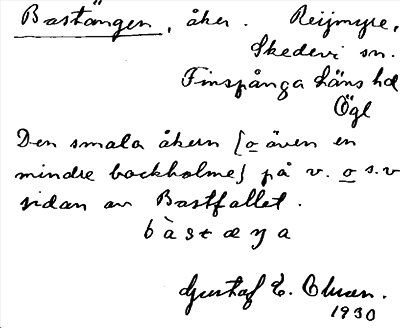 Bastängen, åker. Reijmyre,
Skedevi sn.
Finspånga läns hd
Ögl
Den smala åkern [o även en
mindre backholme] på v. o s.v
sidan av Bastfallet.
Gustaf E.
1930